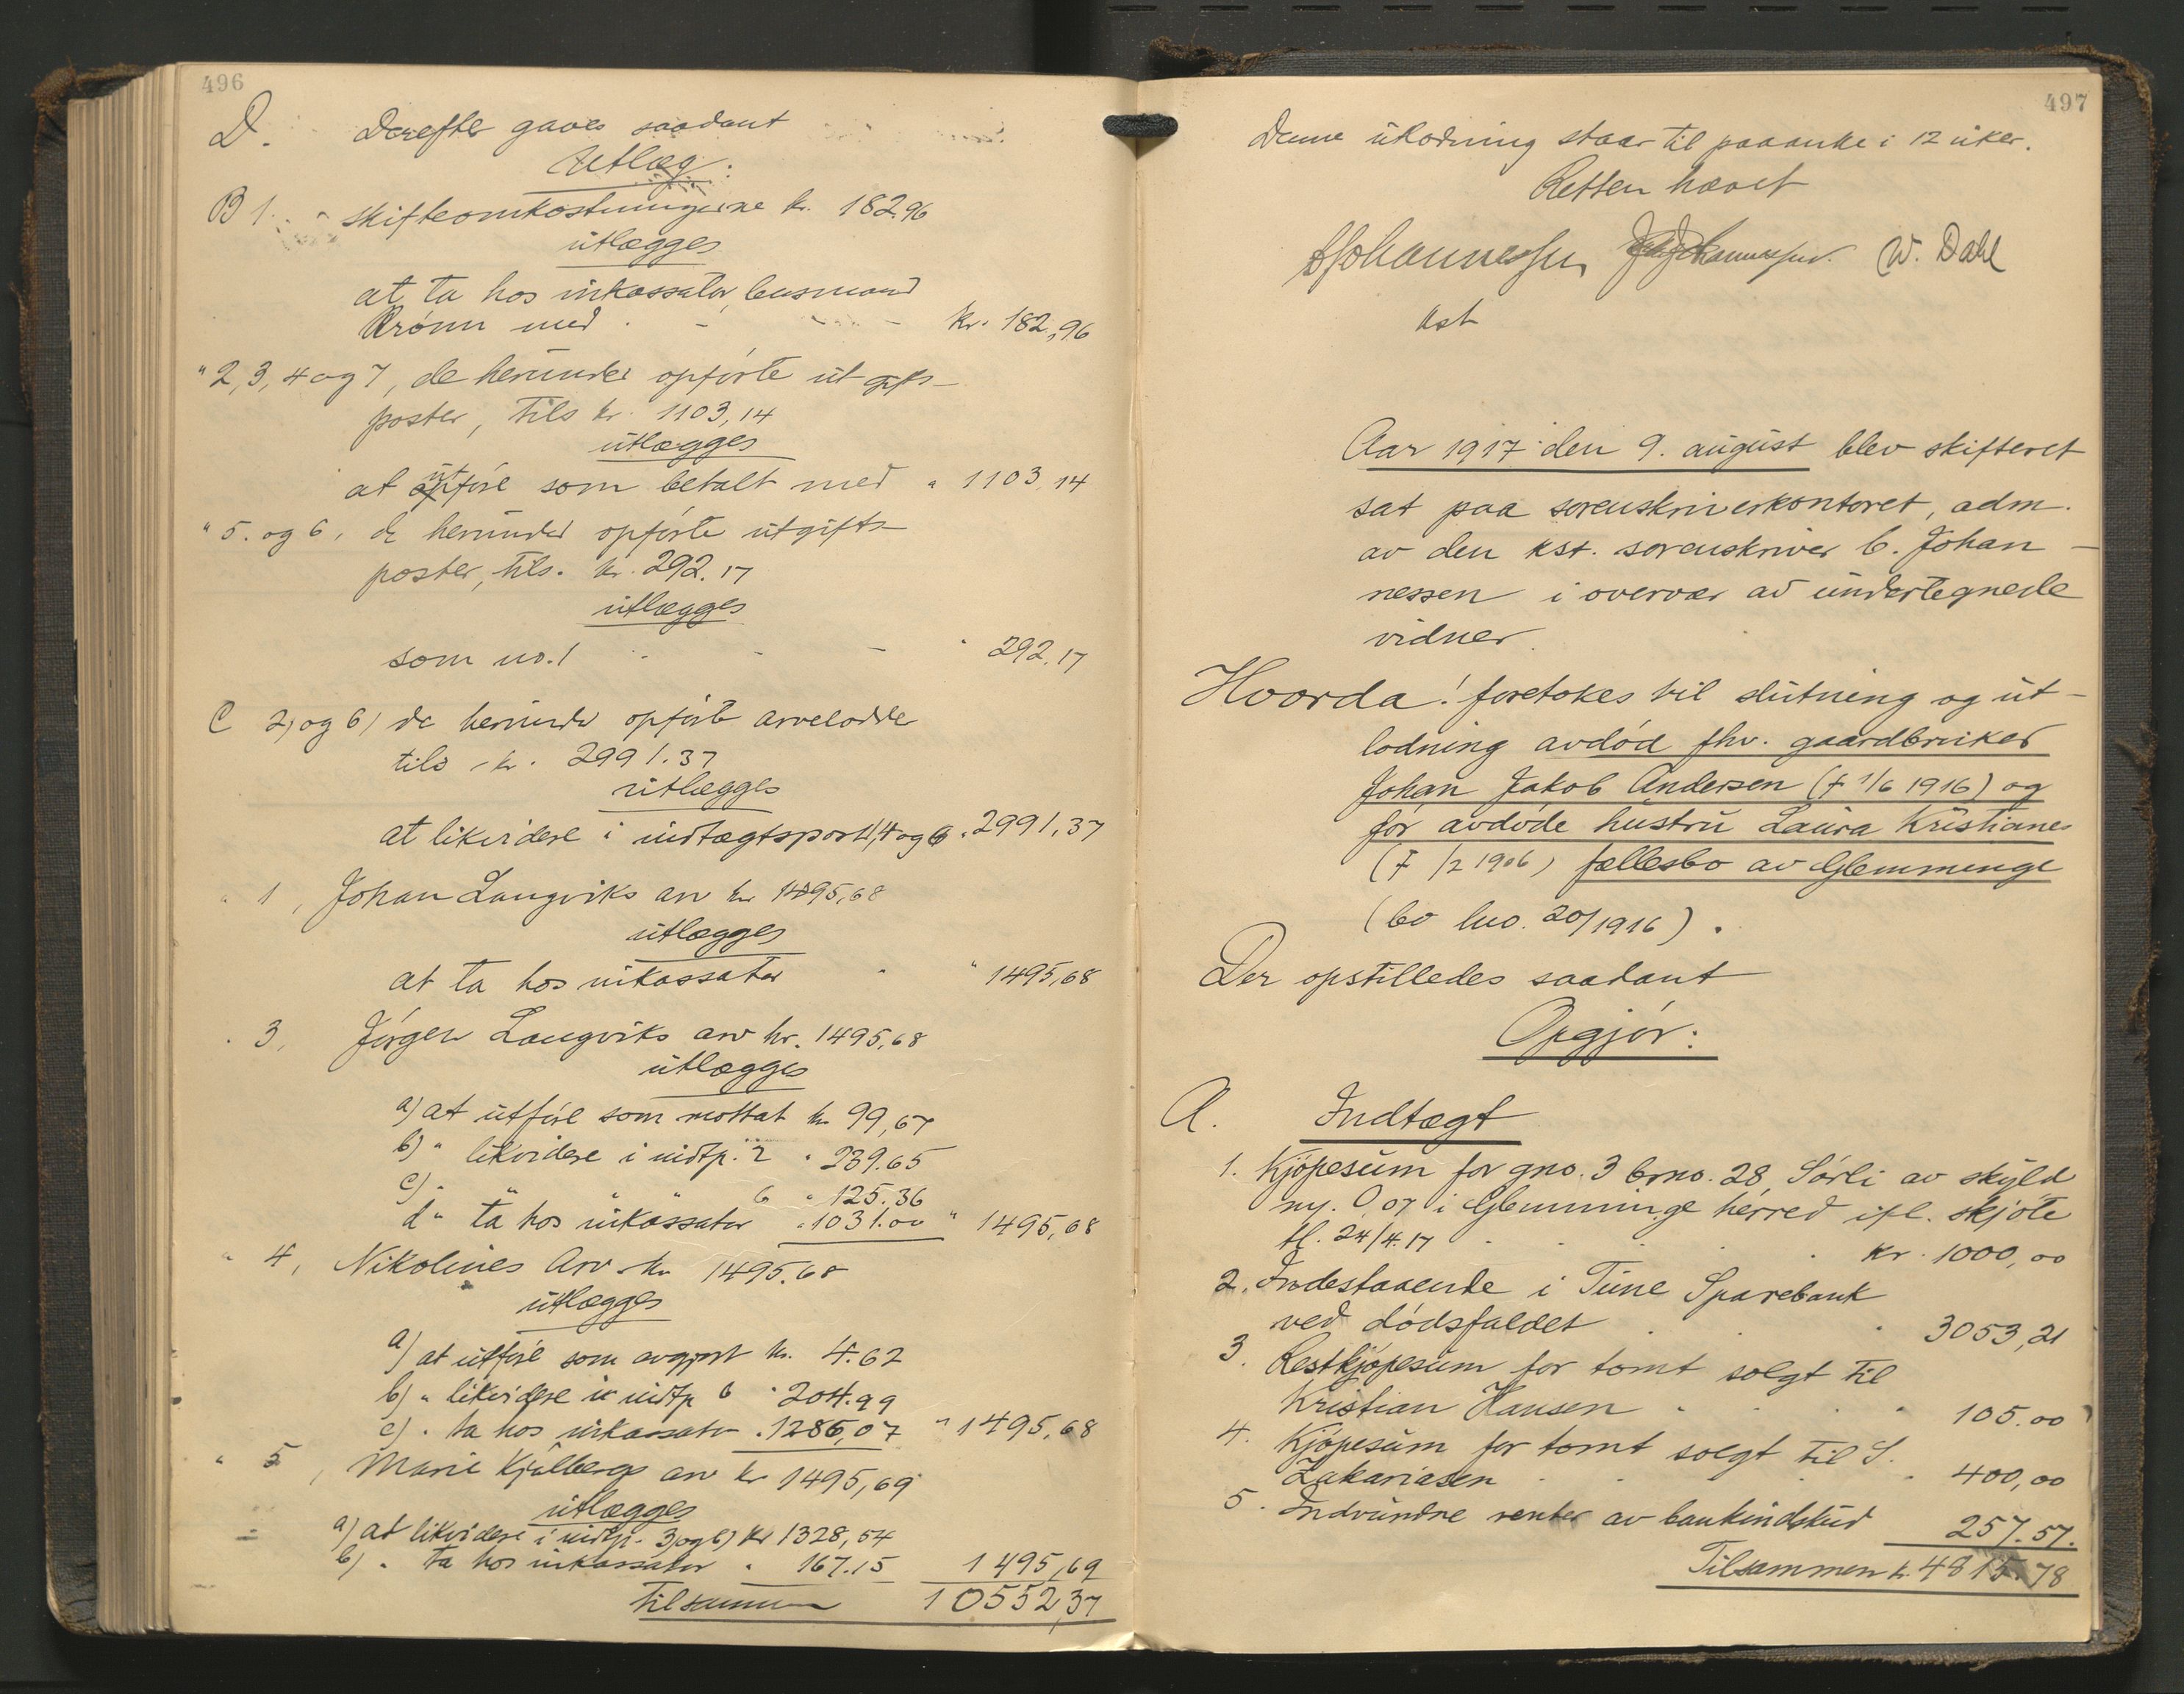 496
D. Derefter gaves saadant
Utlæg:
B 1. skifteomkostningerne kr. 182.96
utlægges
at ta hos inkassator, lensmand
Krönn med - - kr. 182,96
" 2, 3, 4 og 7, de herunder opförte utgifts-
poster, tils kr. 1103,14
utlægges
at utföre som betalt med " 1103,14
" 5. og 6, de herunder opförte utgifts-
poster, tils. kr. 292.17
utlægges
som no. 1 - - " 292.17
C 2) og 6) de herunder opförte arvelodder
tils kr. 2991.37
utlægges
at likvidere i indtægtspost 1, 4 og 6 " 2991,37
" 1, Johan Langviks arv kr 1495,68
utlægges
at ta hos inkassator " 1495,68
" 3, Jörgen Langviks arv kr. 1495,68
utlægges
a) at utföre som mottat kr 99,67
b) " likvidere i indtp. 2 " 239.65
c) " " " 6 " 125.36
d " ta hos inkassator " 1031.00 " 1495,68
" 4, Nikolines Arv kr 1495.68
utlægges
a) at utföre som avgjort kr. 4.62
b) " likvidere i indtp 6 " 204.99
c) " ta hos inkassator " 1286,07 " 1495,68
" 5, Marie Kjölbergs arv kr 1495,69
utlægges
a) at likvidere i indtp. 3) og 6) kr 1328,54
b) " ta hos inkassator " 167.15 1495,69
Tilsammen 10552,37
497
Denne utlodning staar til paaanke i 12 uker.
Retten hævet
CJohannessen W. Dahl
kst
Aar 1917 den 9. august blev skifteret
sat paa sorenskriverkontoret, adm.
av den kst. sorenskriver C. Johan-
nessen i overvær av undertegnede
vidner.
Hvorda! foretokes til slutning og ut-
lodning avdöd fhv. gaardbruker
Johan Jakob Andersen († 1/6 1916) og
för avdöde hustru Laura Kristianes
(† /2 1906) fællesbo av Glemminge
(bo lno. 20/1916).
Der opstilledes saadant
Opgjör:
A. Indtægt
1. Kjöpesum for gno. 3 brno. 28, Sörli av skyld
my. 0,07 i Glemminge herred ifl. skjöte
tl. 24/4.17 kr. 1000,00
2. Indestaaende i Tune Sparebank
ved dödsfaldet " 3053,21
3. Restkjöpesum for tomt solgt til
Kristian Hansen " 105.00
4. Kjöpesum for tomt solgt til S.
Zakariasen " 400,00
5. Indvundne renter av bankindskud 257.57.
Tilsammen kr. 4815.78